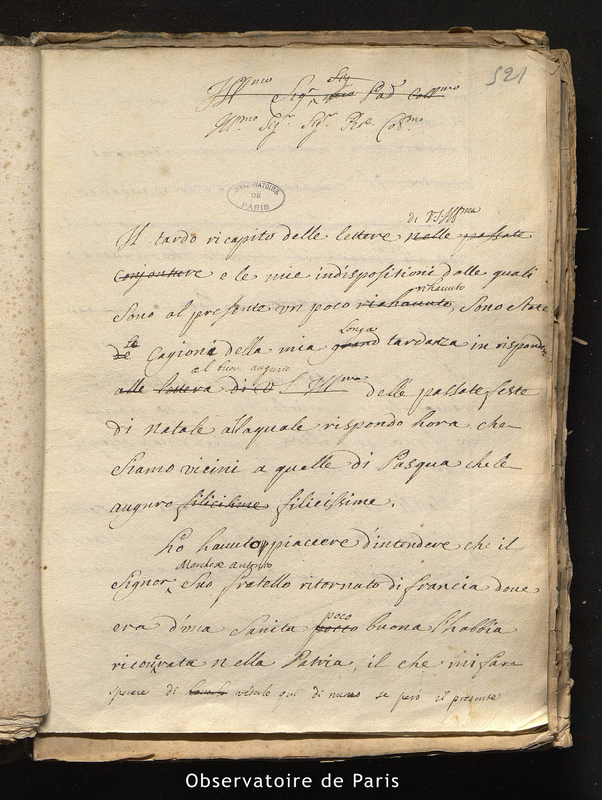 521
Ill^mo Sig^r Sig Pad^e Coll^mo
Ill^mo Sig^r Sig^r P^ne Col^mo
OBSERVATOIRE
DE
PARIS
di V S Ill^ma
Il tardo ricapito delle lettere nelle passate
conjonture e le mie indispositioni dalle quali
rihavuto
sono al presente un poco riahauuto, sono state
la longa
de Cagioni della mia tardanza in risponder
al buon augurio
alle lettera di V S Ill^ma delle passate feste
di natale allaquale rispondo hora che
siamo vicini a quelle di Pasqua che le
auguro filicissime.
ho hauuto piacere d'intendere che il
Marchese antonio
Signor suo fratello ritornato di francia doue
poco
era d'una sanita poco buona l'habbia
ricourata nella Patria, il che mi fara
sperare di vederlo qui di nuovo se però il presente
Observatoire de Paris